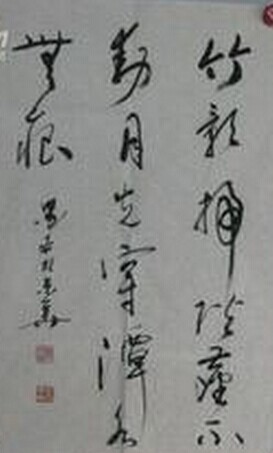 竹影掃階塵不
動月光穿潭水
無痕